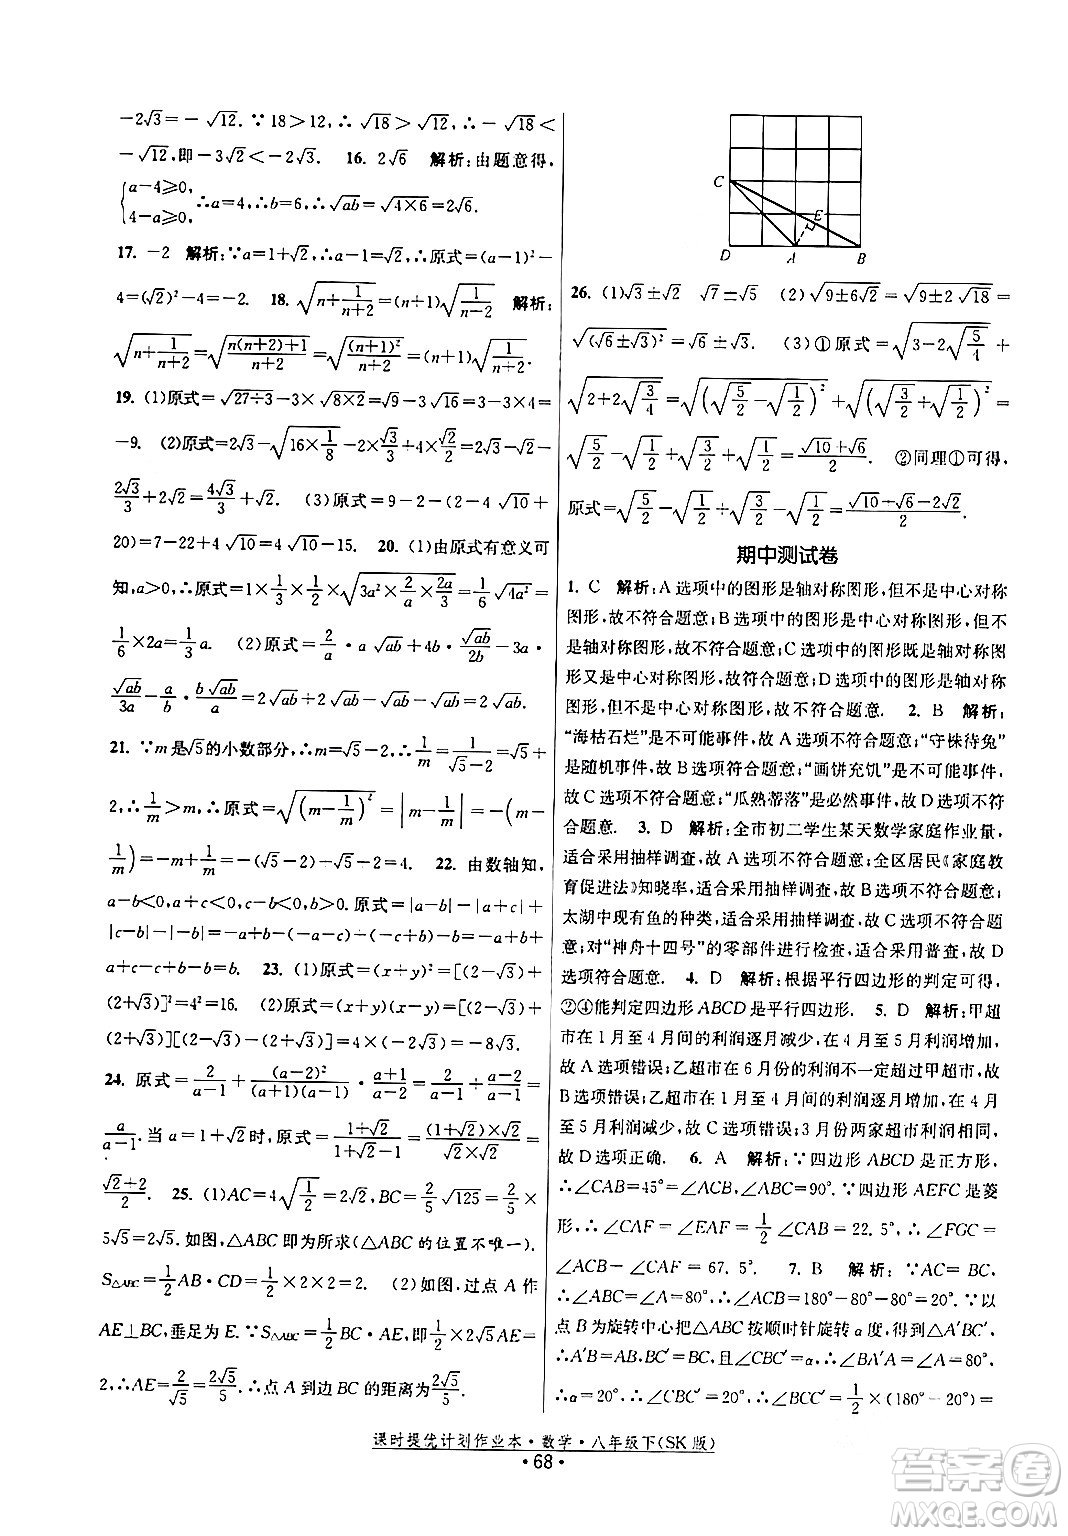 -2√3=-√12.∵18>12,∴√18>√12,∴-√18<
-√12,即-3√2<-2√3. 16. 2√6 解析:由题意得,
{a-4≥0, 4-a≥0,∴a=4,∴b=6,∴√ab=√(4×6)=2√6.
17. -2 解析:∵a=1+√2,∴a-1=√2,∴原式=(a-1)²-
4=(√2)²-4=-2. 18. √(n+1/(n+2))=(n+1)√(1/(n+2)) 解析:
√(n+1/(n+2))=√((n(n+2)+1)/(n+2))=√((n+1)²/(n+2))=(n+1)√(1/(n+2)).
19. (1)原式=√(27÷3)-3×√(8×2)=√9-3√16=3-3×4=
-9. (2)原式=2√3-√(16×1/8)-4×√3/3+4×√2/2=
2√3/3+2√2=4√3/3+√2. (3)原式=9-2-(2-4√10+
20)=7-22+4√10=4√10-15. 20. (1)由原式有意义可
知,a>0.原式=1×1/2×1/3×√(3/2×2/a×2a/3)=
1/6×2a=1/3a. (2)原式=2/a·a√ab+4b·√ab/2b-6a·
√ab/3a-a/b·b√ab/a=2√ab+2√ab-2√ab-√ab=√ab.
21. ∵m是√5的小数部分,∴m=√5-2,∴1/m=1/(√5-2)=√5+
2,∴1/m>m,∴原式=√((m-1/m)²)=|m-1/m|=-(m-
1/m)=-m+1/m=-(√5-2)+√5+2=4. 22. 由数轴知,
a-b<0,a+c<0.原式=|a-b|-|a+c|+
|c-b|-|-b|=-(a-b)+(a+c)+(-c+b)-b=-a+b+
a+c-c+b-b=b. 23. (1)原式=(x+y)²=[(2-√3)+
(2+√3)]²=4²=16. (2)原式=(x+y)(x-y)=[(2-√3)+
(2+√3)][(2-√3)-(2+√3)]=4×(-2√3)=-8√3.
24. 原式=2/(a-1)+(a-2)²/((a+1)(a-1))·(a+1)/(a-2)=2/(a-1)+(a-2)/(a-1)=
a/(a-1).当a=1+√2时,原式=(1+√2)/(1+√2-1)=(1+√2)×√2/(√2×√2)=
(√2+2)/2. 25. (1)AC=4√(1/2)=2√2,BC=2/5√125=2/5×
5√5=2√5.如图,△ABC即为所求(△ABC的位置不唯一).
S△ABC=1/2AB·CD=1/2×2×2=2. (2)如图,过点A作
AE⊥BC,垂足为E.∵S△ABC=1/2BC·AE=1/2×2√5AE=
2,∴AE=2/√5=2√5/5.∴点A到边BC的距离为2√5/5.
C E D A B
26. (1)√3±√2 √7±√5 (2)√(9±6√2)=√(9±2√18)=
√((√6±√3)²)=√6±√3. (3)①原式=√(3-2√(5/4))+
√(2+2√(3/4))=√((√(5/2)-√(1/2))²)+√((√(3/2)+√(1/2))²)=
√(5/2)-√(1/2)+√(3/2)+√(1/2)=(√10+√6)/2. ②同理①可得,
原式=√(5/2)-√(1/2)+√(3/2)-√(1/2)=(√10+√6-2√2)/2.
期中测试卷
1. C 解析:A选项中的图形是轴对称图形,但不是中心对称
图形,故不符合题意;B选项中的图形是中心对称图形,但不
是轴对称图形,故不符合题意;C选项中的图形既是轴对称图
形又是中心对称图形,故符合题意;D选项中的图形是轴对称
图形,但不是中心对称图形,故不符合题意. 2. B 解析:
“海枯石烂”是不可能事件,故A选项不符合题意;“守株待兔”
是随机事件,故B选项符合题意;“画饼充饥”是不可能事件,
故C选项不符合题意;“瓜熟蒂落”是必然事件,故D选项不符
合题意. 3. D 解析:全市初二学生某天数学家庭作业量,
适合采用抽样调查,故A选项不符合题意;全区居民《家庭教
育促进法》知晓率,适合采用抽样调查,故B选项不符合题意;
太湖中现有鱼的种类,适合采用抽样调查,故C选项不符合题
意;对“神舟十四号”的零部件进行检查,适合采用普查,故D
选项符合题意. 4. D 解析:根据平行四边形的判定可得,
②④能判定四边形ABCD是平行四边形. 5. D 解析:甲超
市在1月至4月间的利润逐月减少,在4月至6月利润增加,
故A选项错误;乙超市在6月间的利润不一定超过甲超市,故
B选项错误;乙超市在1月至4月间的利润逐月增加,在4月
至5月利润减少,故C选项错误;3月份两家超市利润相同,故
D选项正确. 6. A 解析:∵四边形ABCD是正方形,
∴∠CAB=45°=∠ACB,∠ABC=90°.∵四边形AEFC是菱
形,∴∠CAF=∠EAF=1/2∠CAB=22.5°,∴∠FGC=
∠ACB+∠CAF=67.5°. 7. B 解析:∵AC=BC,
∴∠ABC=∠A=80°,∴∠ACB=180°-80°-80°=20°.∵以
点B为旋转中心把△ABC按顺时针旋转α度,得△A′BC′,
∴∠BA′C′=∠A=80°,BC=BC′,且∠CBC′=α.∴∠BA′A=∠A=80°,
∴α=20°,∴∠CBC′=20°,∴∠BCC′=1/2×(180°-20°)=
课时提优计划作业本·数学·八年级下(SK版)
·68·
答案圈
MXQE.COM